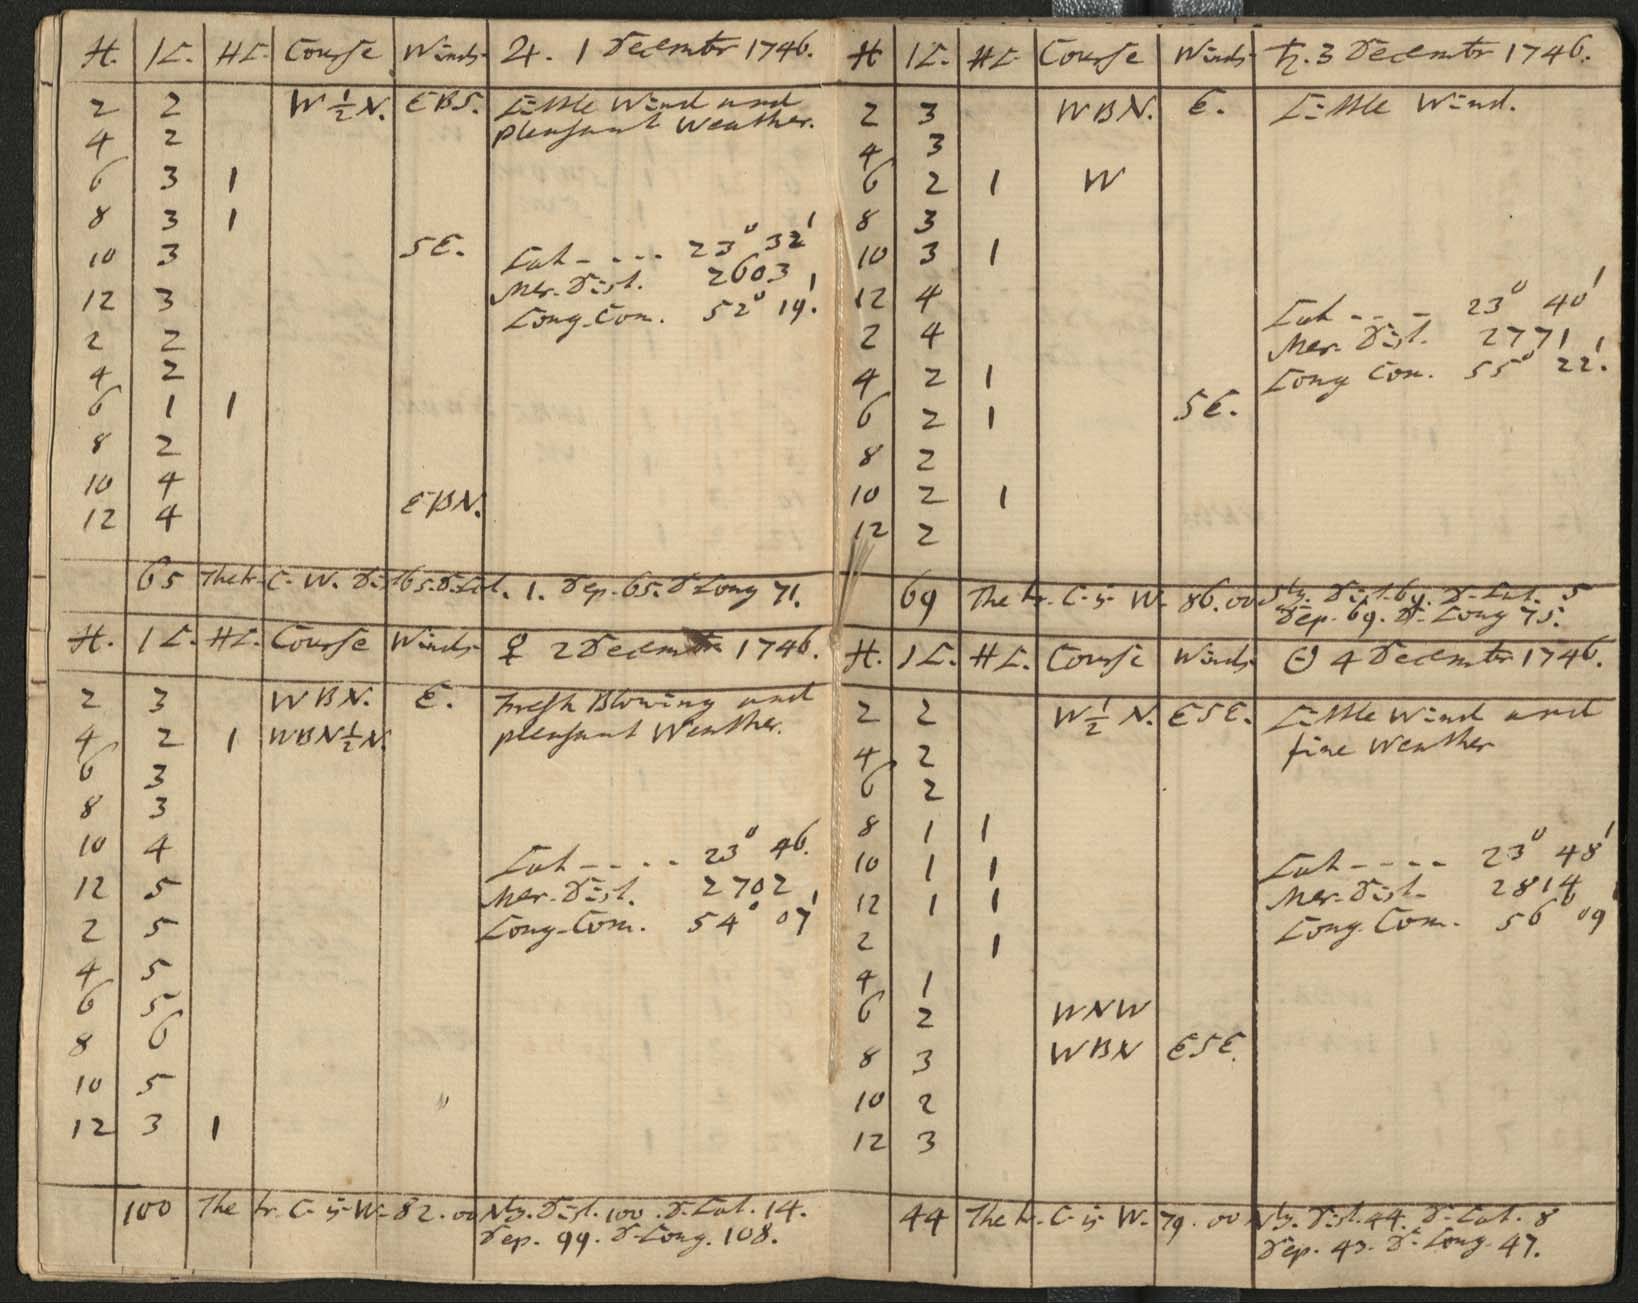 H. 1K. HK. Course Winds ♃. 1 Decembr 1746.
2 2 W ½ N. EBS. Little Wind and
pleasant Weather.
4 2
6 3 1
8 3 1
10 3 SE. Lat - - - - 23° 32'
Mer. Dist. 2603
12 3 Long. Com. 52° 19'.
2 2
4 2
6 1 1
8 2
10 4
12 4 EBN.
65 The tr. C. W. Dist 65. D. Lat. 1. Dep. 65. D Long 71.
H. 1K. HK. Course Winds ♀ 2 Decembr 1746.
2 3 WBN. E. Fresh Blowing and
4 2 1 WBN½N. pleasant Weather.
6 3
8 3
10 4 Lat - - - - 23° 46.
12 5 Mer. Dist. 2702
2 5 Long. Com. 54° 07'
4 5
6 5
8 6
10 5
12 3 1
100 The tr. C is W. 82.00 Nly. Dist. 100. D. Lat. 14.
Dep. 99. D. Long. 108.
H 1K. HK. Course Winds ♄. 3 Decembr 1746.
2 3 WBN. E. Little Wind.
4 3
6 2 1 W
8 3
10 3 1
12 4 Lat - - - 23° 40'
2 4 Mer. Dist. 2771
4 2 1 Long Com. 55° 22'.
6 2 1 SE.
8 2
10 2 1
12 2
69 The tr. C. is W. 86.00 Sly. Dist. 69. D. Lat. 5
Dep. 69. D. Long 75.
H. 1K. HK. Course Winds ☉ 4 Decembr 1746.
2 2 W ½ N. ESE. Little Wind and
4 2 fine Weather
6 2
8 1 1
10 1 1 Lat - - - - 23° 48'
12 1 1 Mer. Dist. 2814
2 1 Long. Com. 56° 09'
4 1
6 2 WNW
8 3 WBN ESE.
10 2
12 3
44 The tr. C. is W. 79.00 Nly. Dist. 44. D. Lat. 8
Dep. 43. D. Long. 47.